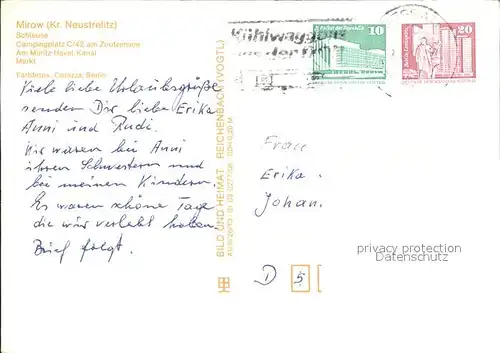 Mirow (Kr. Neustrelitz)
Schleuse
Campingplatz C/42 am Zootzensee
Am Müritz-Havel-Kanal
Markt
Farbfotos: Carazza, Berlin
Viele liebe Urlaubsgrüße
senden Dir liebe Erika
Anni und Rudi.
Wir waren bei Anni
ihren Schwestern und
bei meinen Kindern.
Es waren schöne Tage
die wir verlebt haben.
Brief folgt.
BILD UND HEIMAT REICHENBACH (VOGTL)
Kühlwaggons
aus der DDR
10
20
Frau
Erika
Johan.
D 5
privacy protection
Datenschutz